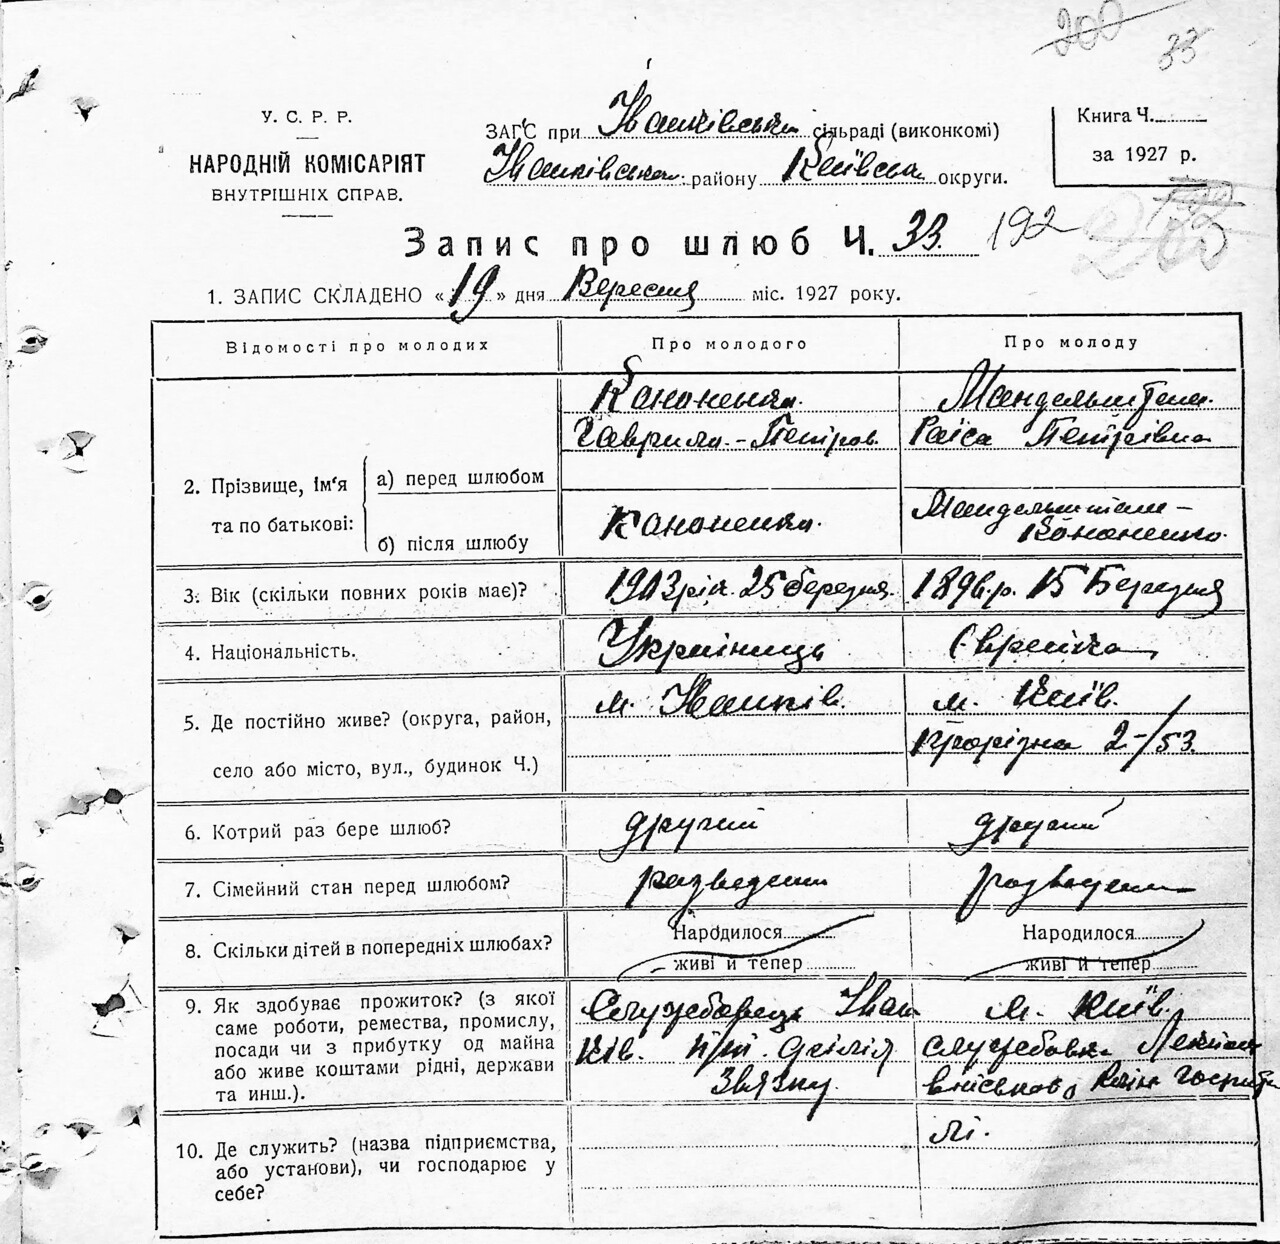 200
33
У. С. Р. Р.
НАРОДНІЙ КОМІСАРІЯТ
ВНУТРІШНІХ СПРАВ.
ЗАГС при Іванківськім сільраді (виконкомі)
Іванківського району Київська округи.
Книга Ч.
за 1927 р.
Запис про шлюб Ч. 33. 192
1. ЗАПИС СКЛАДЕНО «19» дня Вересня міс. 1927 року.
Відомості про молодих
Про молодого
Про молоду
2. Прізвище, ім'я та по батькові:
а) перед шлюбом
Кононенко
Гаврило Петров.
Мандельштам
Раїса Петрівна
б) після шлюбу
Кононенко
Мандельштам-
Кононенко
3. Вік (скільки повних років має)?
1903 рік. 25 березня.
1896 р. 15 Березня
4. Національність.
Українець
Єврейка
5. Де постійно живе? (округа, район,
село або місто, вул., будинок Ч.)
м. Іванків.
м. Київ.
Прорізна 2/53.
6. Котрий раз бере шлюб?
другий
другий
7. Сімейний стан перед шлюбом?
разведений
розведена
8. Скільки дітей в попередніх шлюбах?
Народилося
живі й тепер
Народилося
живі й тепер
9. Як здобуває прожиток? (з якої
саме роботи, ремества, промислу,
посади чи з прибутку од майна
або живе коштами рідні, держави
та инш.).
Службовець Іван
ків. філія
Звязку.
м. Київ.
службовка
військово госпіта
лі.
10. Де служить? (назва підприємства,
або установи), чи господарює у
себе?